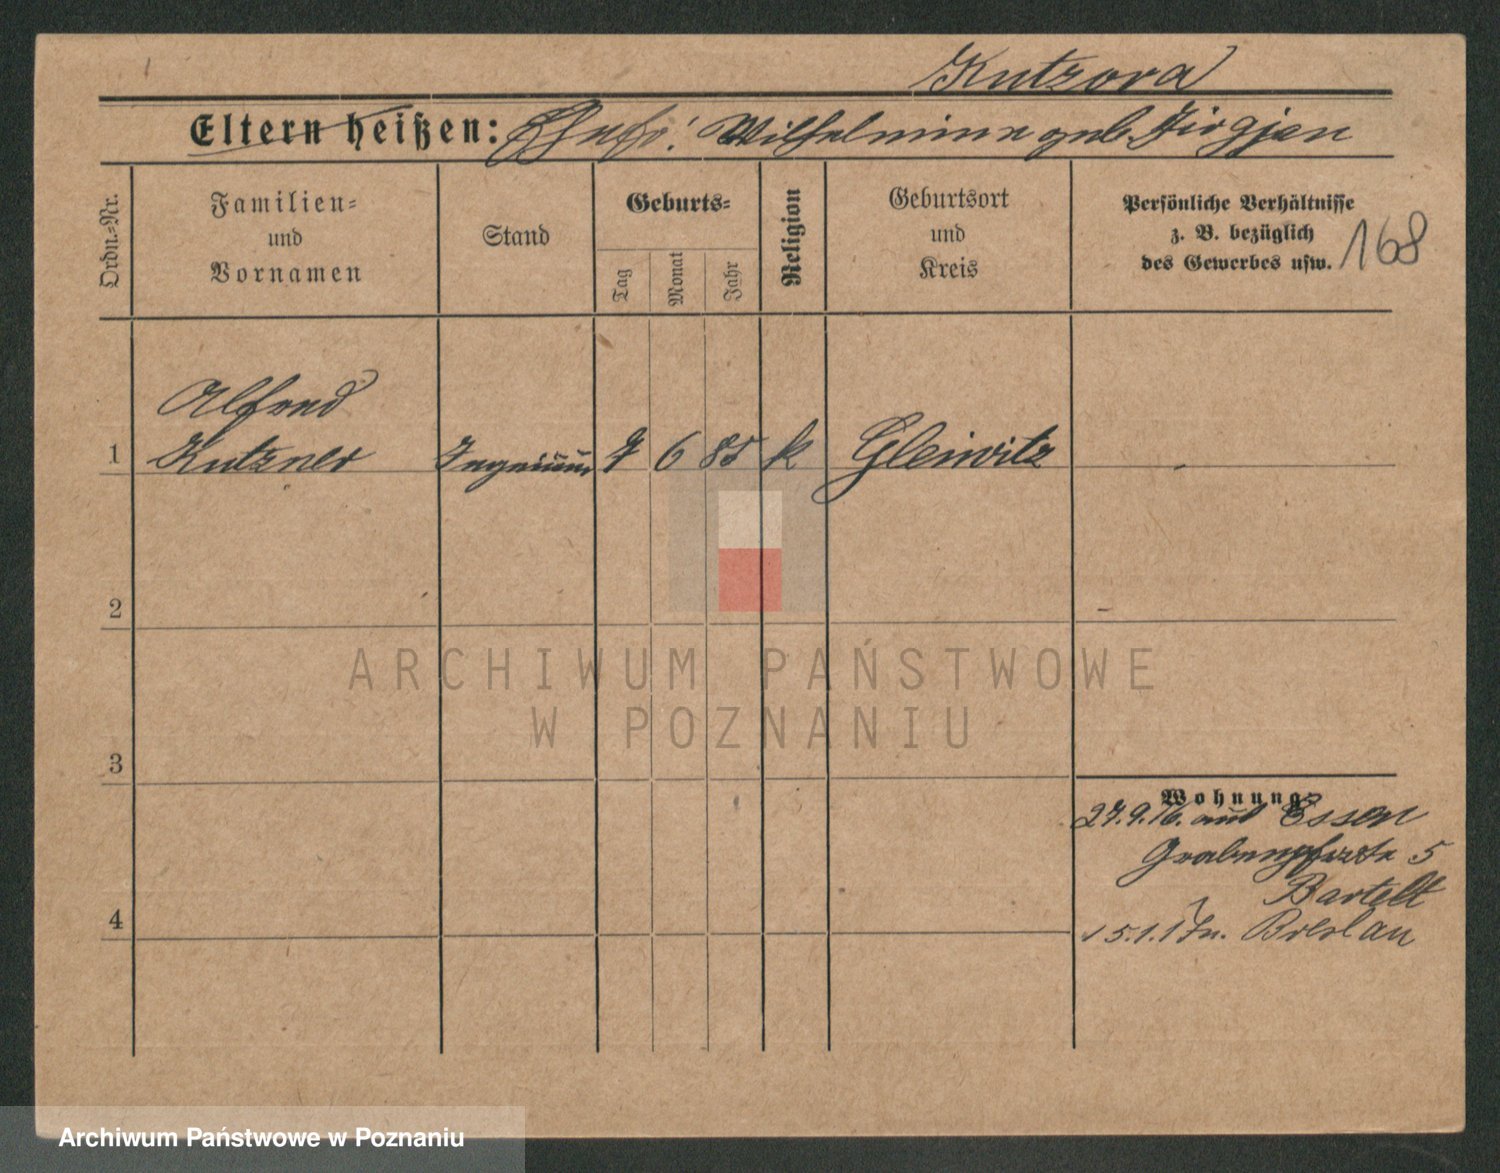 Kutzora
Eltern heißen: Ehefr: Wilhelmine geb.
Ordn.-Nr.
Familien-
und
Vornamen
Stand
Geburts-
Tag
Monat
Jahr
Religion
Geburtsort
und
Kreis
Persönliche Verhältnisse
z. B. bezüglich
des Gewerbes usw.
168
Alfred
1 Kutzner Ingenieur 7 6 85 k Gleiwitz
2
ARCHIWUM PAŃSTWOWE
W POZNANIU
3
Wohnung
27.9.16. aus Essen
5
Bartelt
15.1.17 n. Breslau
4
Archiwum Państwowe w Poznaniu